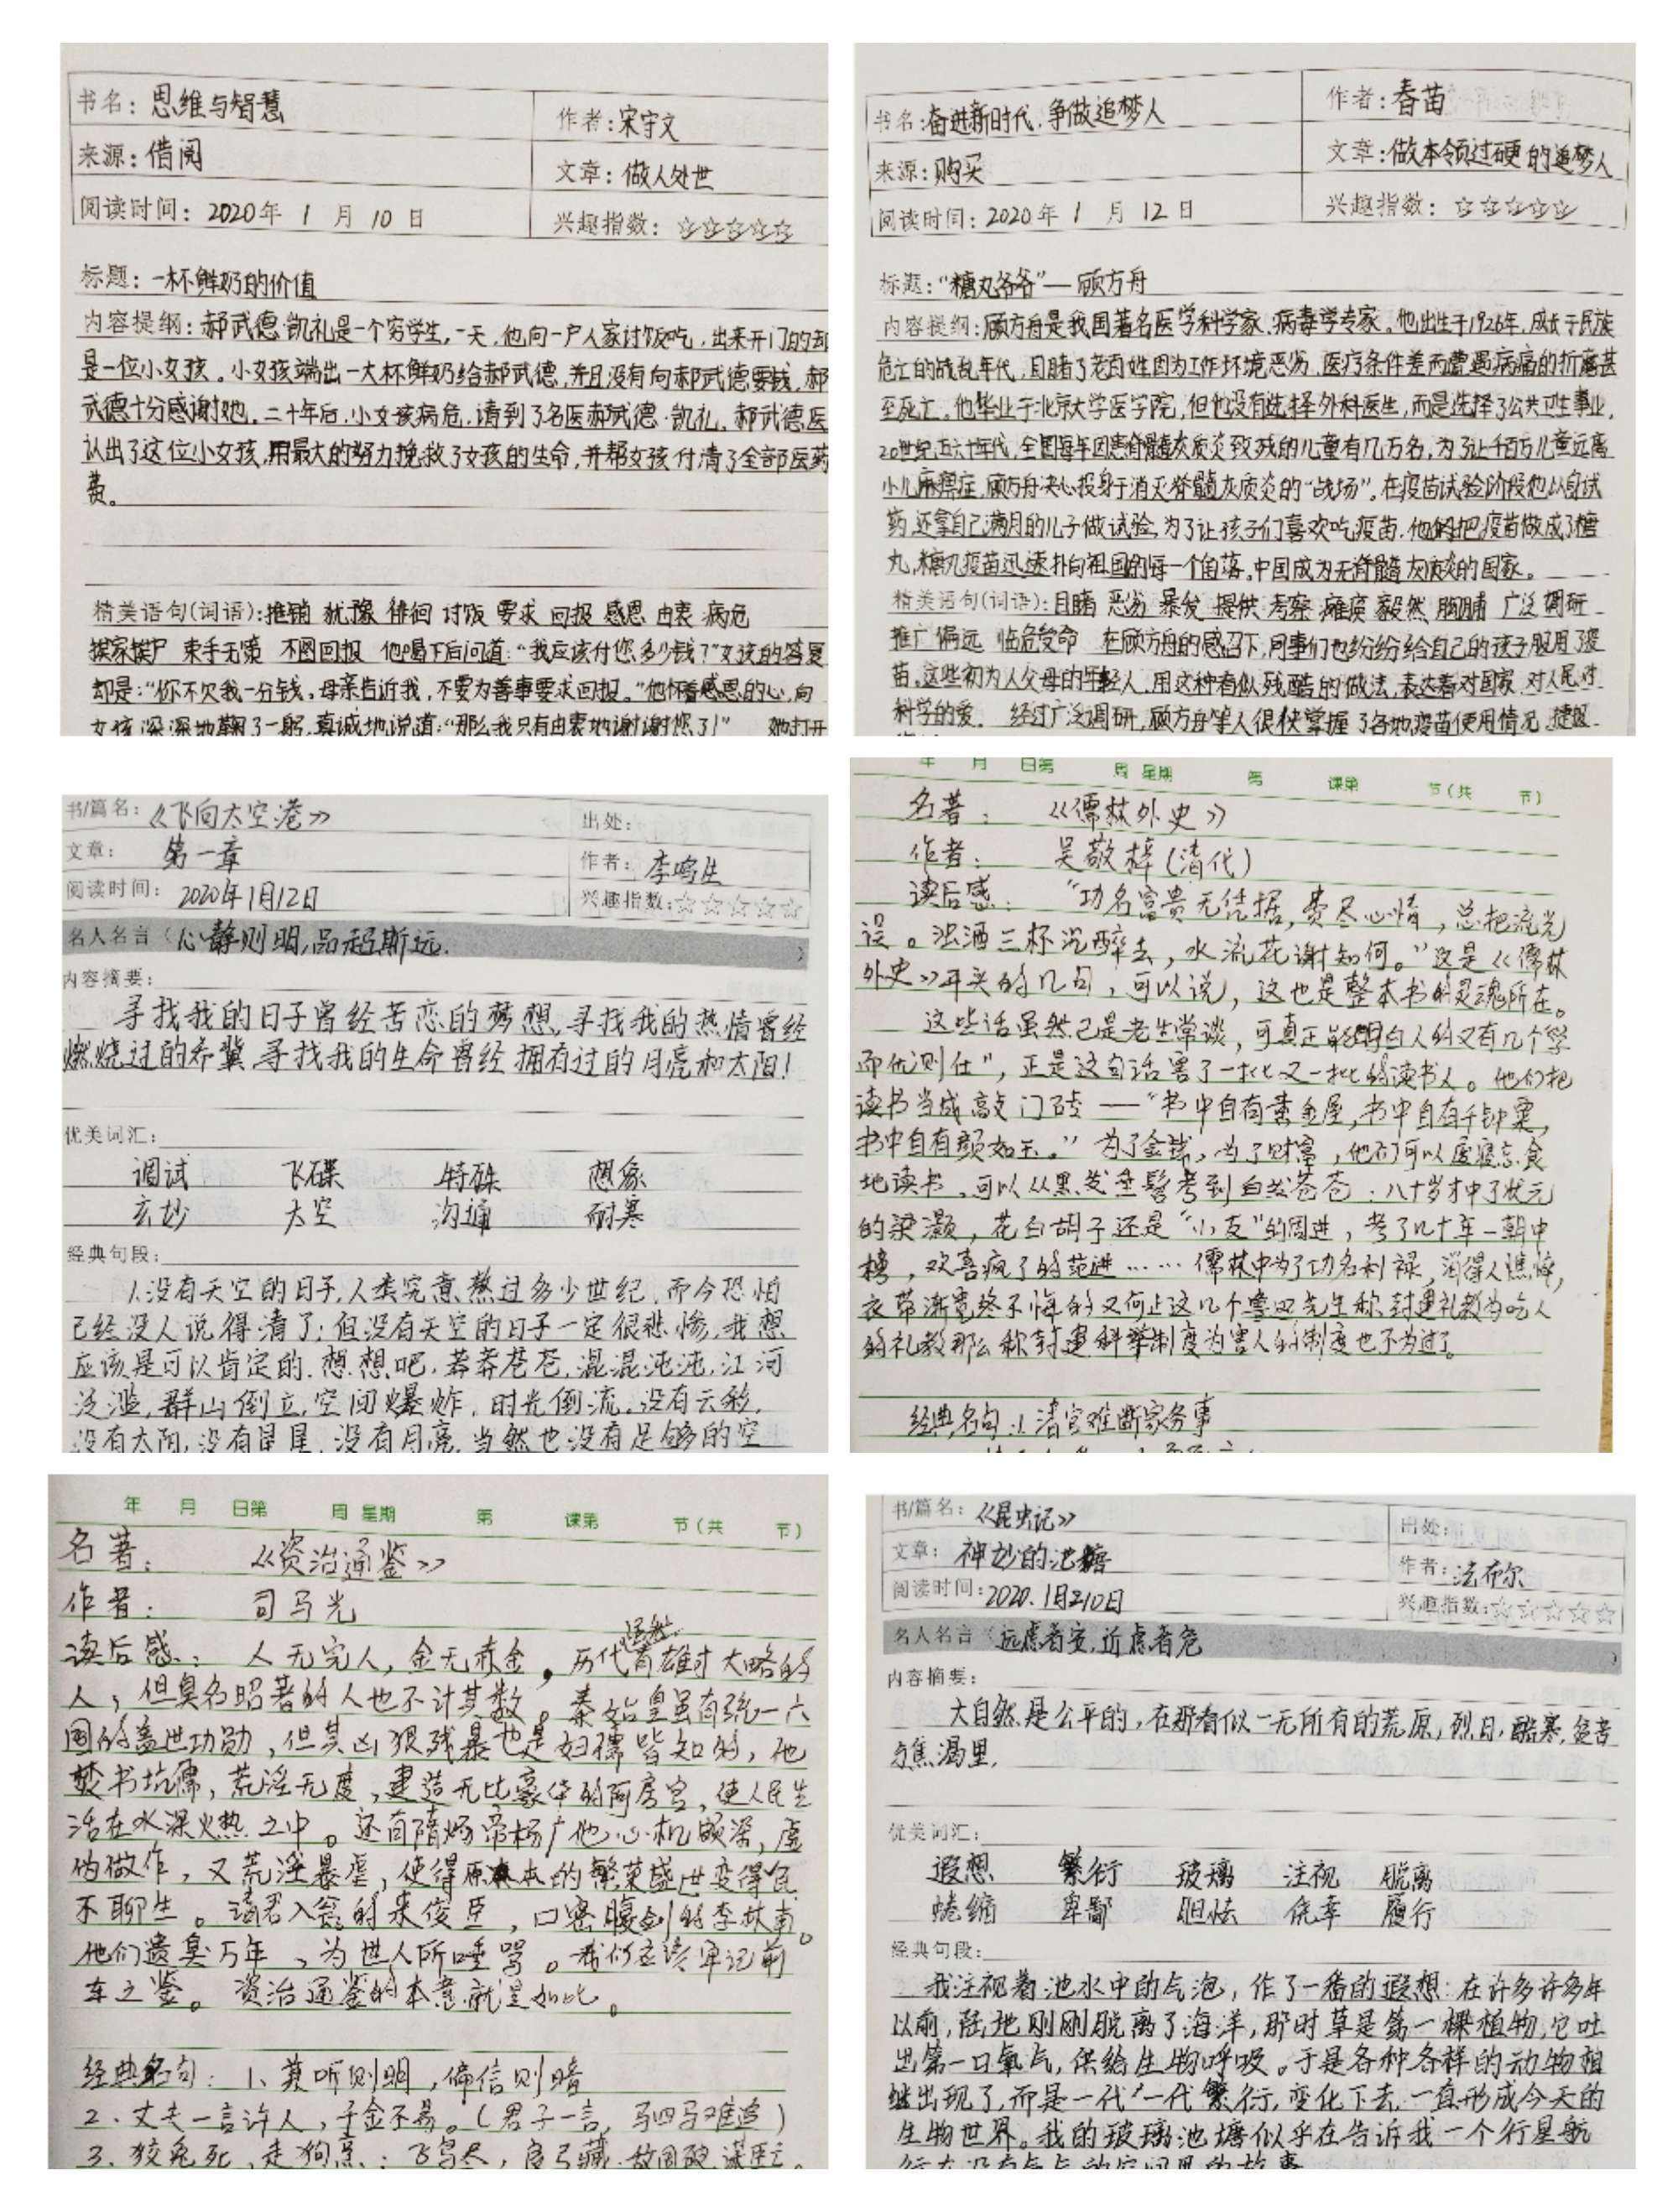 书名：思维与智慧
作者：宋守文
来源：借阅
文章：做人处世
阅读时间：2020年 1 月 10 日
兴趣指数：☆☆☆☆☆
标题：一杯鲜奶的价值
内容提纲：郝武德·凯礼是一个穷学生，一天，他向一户人家讨饭吃，出来开门的却
是一位小女孩。小女孩端出一大杯鲜奶给郝武德，并且没有向郝武德要钱，郝
武德十分感谢她。二十年后，小女孩病危，请到了名医郝武德·凯礼。郝武德医
认出了这位小女孩，用最大的努力挽救了女孩的生命，并帮女孩付清了全部医药
费。
精美语句(词语)：推销 犹豫 徘徊 讨饭 要求 回报 感恩 由衷 病危
挨家挨户 束手无策 不图回报 他喝下后问道：“我应该付您多少钱？”女孩的答复
却是：“你不欠我一分钱，母亲告诉我，不要为善事要求回报。”他怀着感恩的心，向
女孩深深地鞠了一躬，真诚地说道：“那么我只有由衷地谢谢您了！” 她打开
书名：奋进新时代，争做追梦人
作者：春苗
来源：购买
文章：做本领过硬的追梦人
阅读时间：2020年 1 月 12 日
兴趣指数：☆☆☆☆☆
标题：“糖丸爷爷”—顾方舟
内容提纲：顾方舟是我国著名医学科学家、病毒学专家。他出生于1926年，成长于民族
危亡的战乱年代，目睹了老百姓因为工作环境恶劣、医疗条件差而遭遇病痛的折磨甚
至死亡。他毕业于北京大学医学院，但他没有选择外科医生，而是选择了公共卫生事业，
20世纪五六十年代，全国每年因患脊髓灰质炎致残的儿童有几万名，为了让千百万儿童远离
小儿麻痹症，顾方舟决心投身于消灭脊髓灰质炎的“战场”。在疫苗试验阶段他以身试
药，还拿自己满月的儿子做试验，为了让孩子们喜欢吃疫苗，他们把疫苗做成了糖
丸，糖丸疫苗迅速扑向祖国的每一个角落，中国成为无脊髓灰质炎的国家。
精美语句(词语)：目睹 恶劣 暴发 提供 考察 瘫痪 毅然 胸脯 广泛 调研
推广 偏远 临危受命 在顾方舟的感召下，同事们也纷纷给自己的孩子服用了疫
苗，这些初为人父母的年轻人，用这种看似残酷的做法，表达着对国家、对人民、对
科学的爱。 经过广泛调研，顾方舟等人很快掌握了各地疫苗使用情况，捷报
书/篇名：《飞向太空港》
出处：
文章： 第一章
作者：李鸣生
阅读时间：2020年1月12日
兴趣指数：☆☆☆☆☆
名人名言（心静则明，品超斯远.）
内容摘要：
寻找我的日子曾经苦恋的梦想，寻找我的热情曾经
燃烧过的希冀，寻找我的生命曾经拥有过的月亮和太阳！
优美词汇：
调试 飞碟 特殊 想象
玄妙 太空 沟通 耐寒
经典句段：
1.没有天空的日子，人类究竟熬过多少世纪，而今恐怕
已经没人说得清了；但没有天空的日子一定很悲惨，我想
应该是可以肯定的.想想吧，莽莽苍苍，混混沌沌，江河
泛滥，群山倒立，空间爆炸，时光倒流，没有云彩，
没有太阳，没有星星，没有月亮，当然也没有足够的空
年 月 日第 周 星期 第 课第 节（共 节）
名著： 《儒林外史》
作者： 吴敬梓（清代）
读后感： “功名富贵无凭据，费尽心情，总把流光
误。浊酒三杯沉醉去，水流花谢知何。”这是《儒林
外史》开头的几句，可以说，这也是整本书的灵魂所在。
这些话虽然已是老生常谈，可真正能明白人的又有几个学
而优则仕”，正是这句话害了一批又一批的读书人。他们把
读书当成敲门砖——“书中自有黄金屋，书中自有千钟粟，
书中自有颜如玉。”为了金钱，为了财富，他们可以废寝忘食
地读书，可以从黑发垂髫考到白发苍苍：八十岁才中了状元
的梁灏，花白胡子还是“小友”的周进，考了几十年一朝中
榜，欢喜疯了的范进……儒林中为了功名利禄，消得人憔悴，
衣带渐宽终不悔的又何止这几个鲁迅先生称封建礼教为吃人
的礼教那么称封建科举制度为害人的制度也不为过了。
经典名句：1.清官难断家务事
年 月 日第 周 星期 第 课第 节（共 节）
名著： 《资治通鉴》
作者： 司马光
读后感： 人无完人，金无赤金，历代有雄才大略的
人，但臭名昭著的人也不计其数。秦始皇虽有统一六
国的盖世功勋，但其凶狠残暴也是妇孺皆知的，他
焚书坑儒，荒淫无度，建造无比豪华的阿房宫，使人民生
活在水深火热之中。还有隋炀帝杨广他心机颇深，虚
伪做作，又荒淫暴虐，使得原本的繁荣盛世变得民
不聊生。请君入瓮的来俊臣，口蜜腹剑的李林甫。
他们遗臭万年，为世人所唾骂。我们应该牢记前
车之鉴。资治通鉴的本意就是如此。
经典名句：1、兼听则明，偏信则暗
2、丈夫一言许人，千金不易。（君子一言，驷马难追）
3、狡兔死，走狗烹；飞鸟尽，良弓藏；敌国破，谋臣亡。
书/篇名：《昆虫记》
出处：
文章：神妙的池塘
作者：法布尔
阅读时间：2020.1月10日
兴趣指数：☆☆☆☆☆
名人名言（远虑者安，近虑者危）
内容摘要：
大自然是公平的，在那看似一无所有的荒原，烈日，酷寒，贫苦
与焦渴里.
优美词汇：
遐想 繁衍 玻璃 注视 脱离
蜷缩 卑鄙 胆怯 侥幸 履行
经典句段：
我注视着池水中的气泡，作了一番的遐想：在许多许多年
以前，陆地刚刚脱离了海洋，那时草是第一棵植物，它吐
出第一口氧气，供给生物呼吸。于是各种各样的动物相
继出现了，而是一代一代繁衍，变化下去，一直形成今天的
生物世界。我的玻璃池塘似乎在告诉我一个行星航